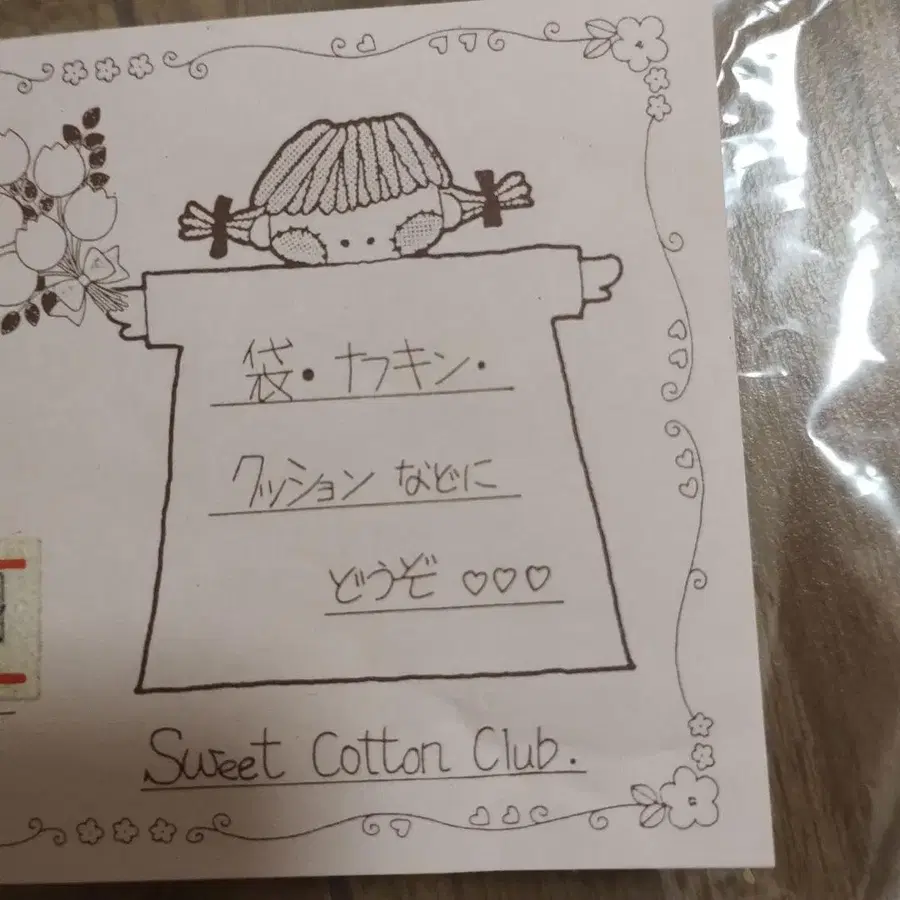 袋・ナフキン・
クッションなどに
どうぞ ♡♡♡
Sweet Cotton Club.